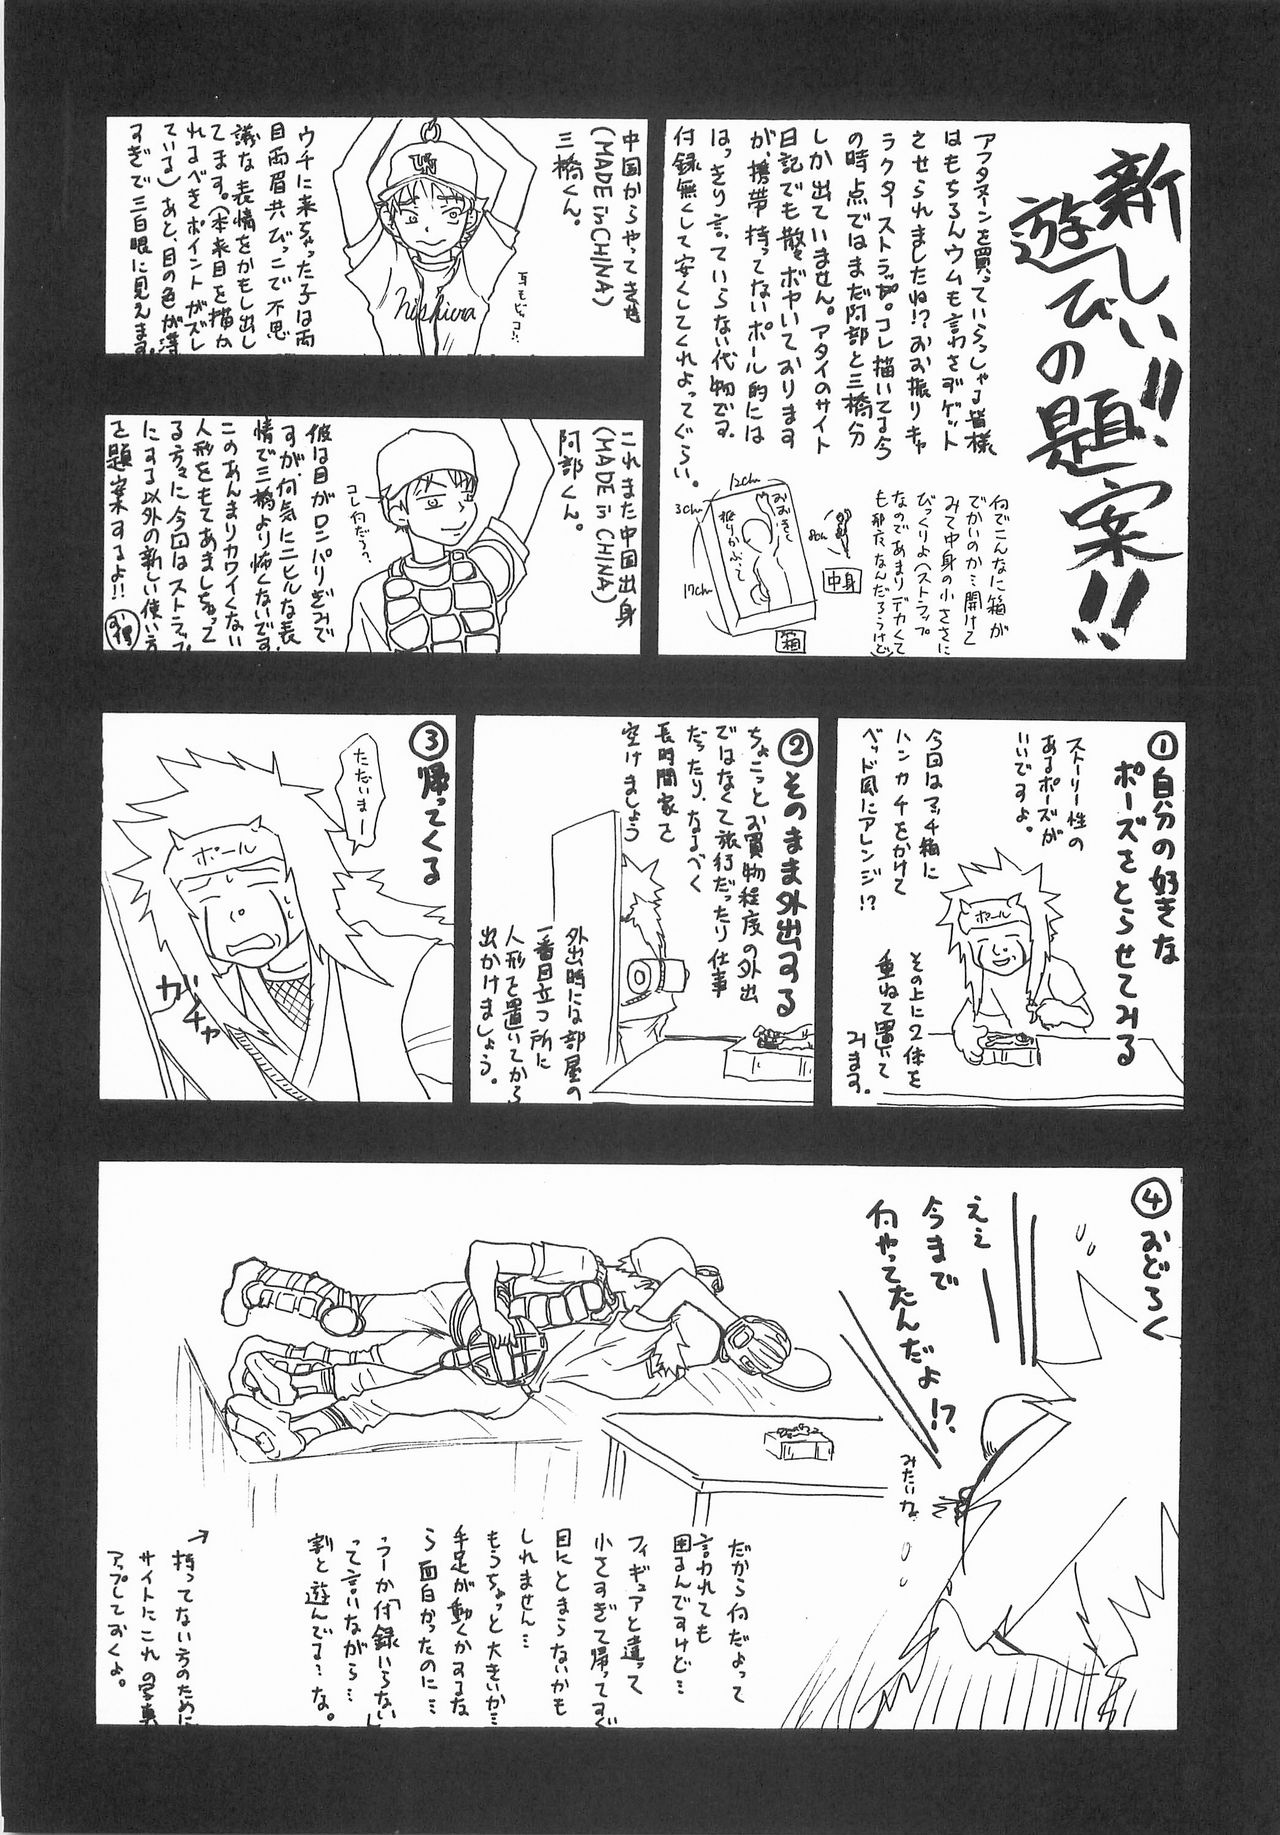 新しい!!
遊びの題案!!
アフタヌーンを買っていらっしゃる皆様
はもちろんウムも言わさずゲット
させられましたね!?おお振りキャ
ラクタストラップ。コレ描いてる今
の時点ではまだ阿部と三橋分
しか出ていません。アタイのサイト
日記でも散々ボヤいております
が、携帯持ってないポール的には
はっきり言っていらない代物です。
付録無くして安くしてくれよってぐらい。
何でこんなに箱が
でかいのか…開けて
みて中身の小ささに
びっくりよ(ストラップ
なのであまりデカくて
も邪魔なんだろうけど)
12cm
3cm
17cm
8cm
おおきく
振りかぶって
中身
箱
中国からやってきた
(MADE in CHINA)
三橋くん。
Nishiura
耳もビッコ!!
ウチに来ちゃった子は両
目両眉共びっこで不思
議な表情をかもし出し
てます。(本来目を描か
れるべきポイントがズレ
ている)あと、目の色が薄
すぎで三白眼に見えます。
これまた中国出身
(MADE in CHINA)
阿部くん。
コレ何だろう?
彼は目がロンパリぎみで
すが、何気にニヒルな表
情で三橋より怖くないです
このあんまりカワイくない
人形をもてあましちゃって
る方々に今回はストラップ
にする以外の新しい使い方
を題案するよ!!
①自分の好きな
ポーズをとらせてみる
ストーリー性の
あるポーズが
いいですよ。
今回はマッチ箱に
ハンカチをかけて
ベッド風にアレンジ!?
その上に2体を
重ねて置いて
みます。
ポール
②そのまま外出する
ちょこっとお買物程度の外出
ではなくて旅行だったり仕事
だったり、なるべく
長時間家を
空けましょう
外出時には部屋の
一番目立つ所に
人形を置いてから
出かけましょう。
③帰ってくる
ただいまー
ポール
ガチャ
④おどろく
ええ——
今まで
何やってたんだよ!?
みたいな。
だから何だよって
言われても
困るんですけど…
フィギュアと違って
小さすぎて帰ってすぐ
目にとまらないかも
しれません…
もうちょっと大きいか…
手足が動くかするな
ら面白かったのに…
つーか「付録いらない」
って言いながら…
割と遊んでる?な。
→持ってない方のために
サイトにこれの写真
アップしておくよ。